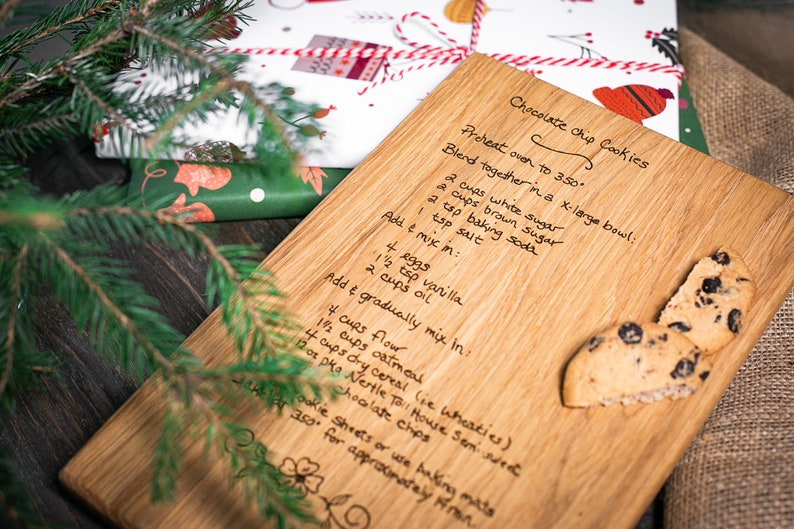 Chocolate Chip Cookies
Preheat oven to 350°
Blend together in a x-large bowl:
2 cups white sugar
2 cups brown sugar
2 tsp baking soda
1 tsp salt
Add & mix in:
4 eggs
1 1/2 tsp vanilla
2 cups oil
Add & gradually mix in:
4 cups flour
1 1/2 cups oatmeal
4 cups dry cereal (i.e. Wheaties)
12 oz pkg Nestle Toll House Semi-sweet
chocolate chips
cookie sheets or use baking mats
350° for approximately